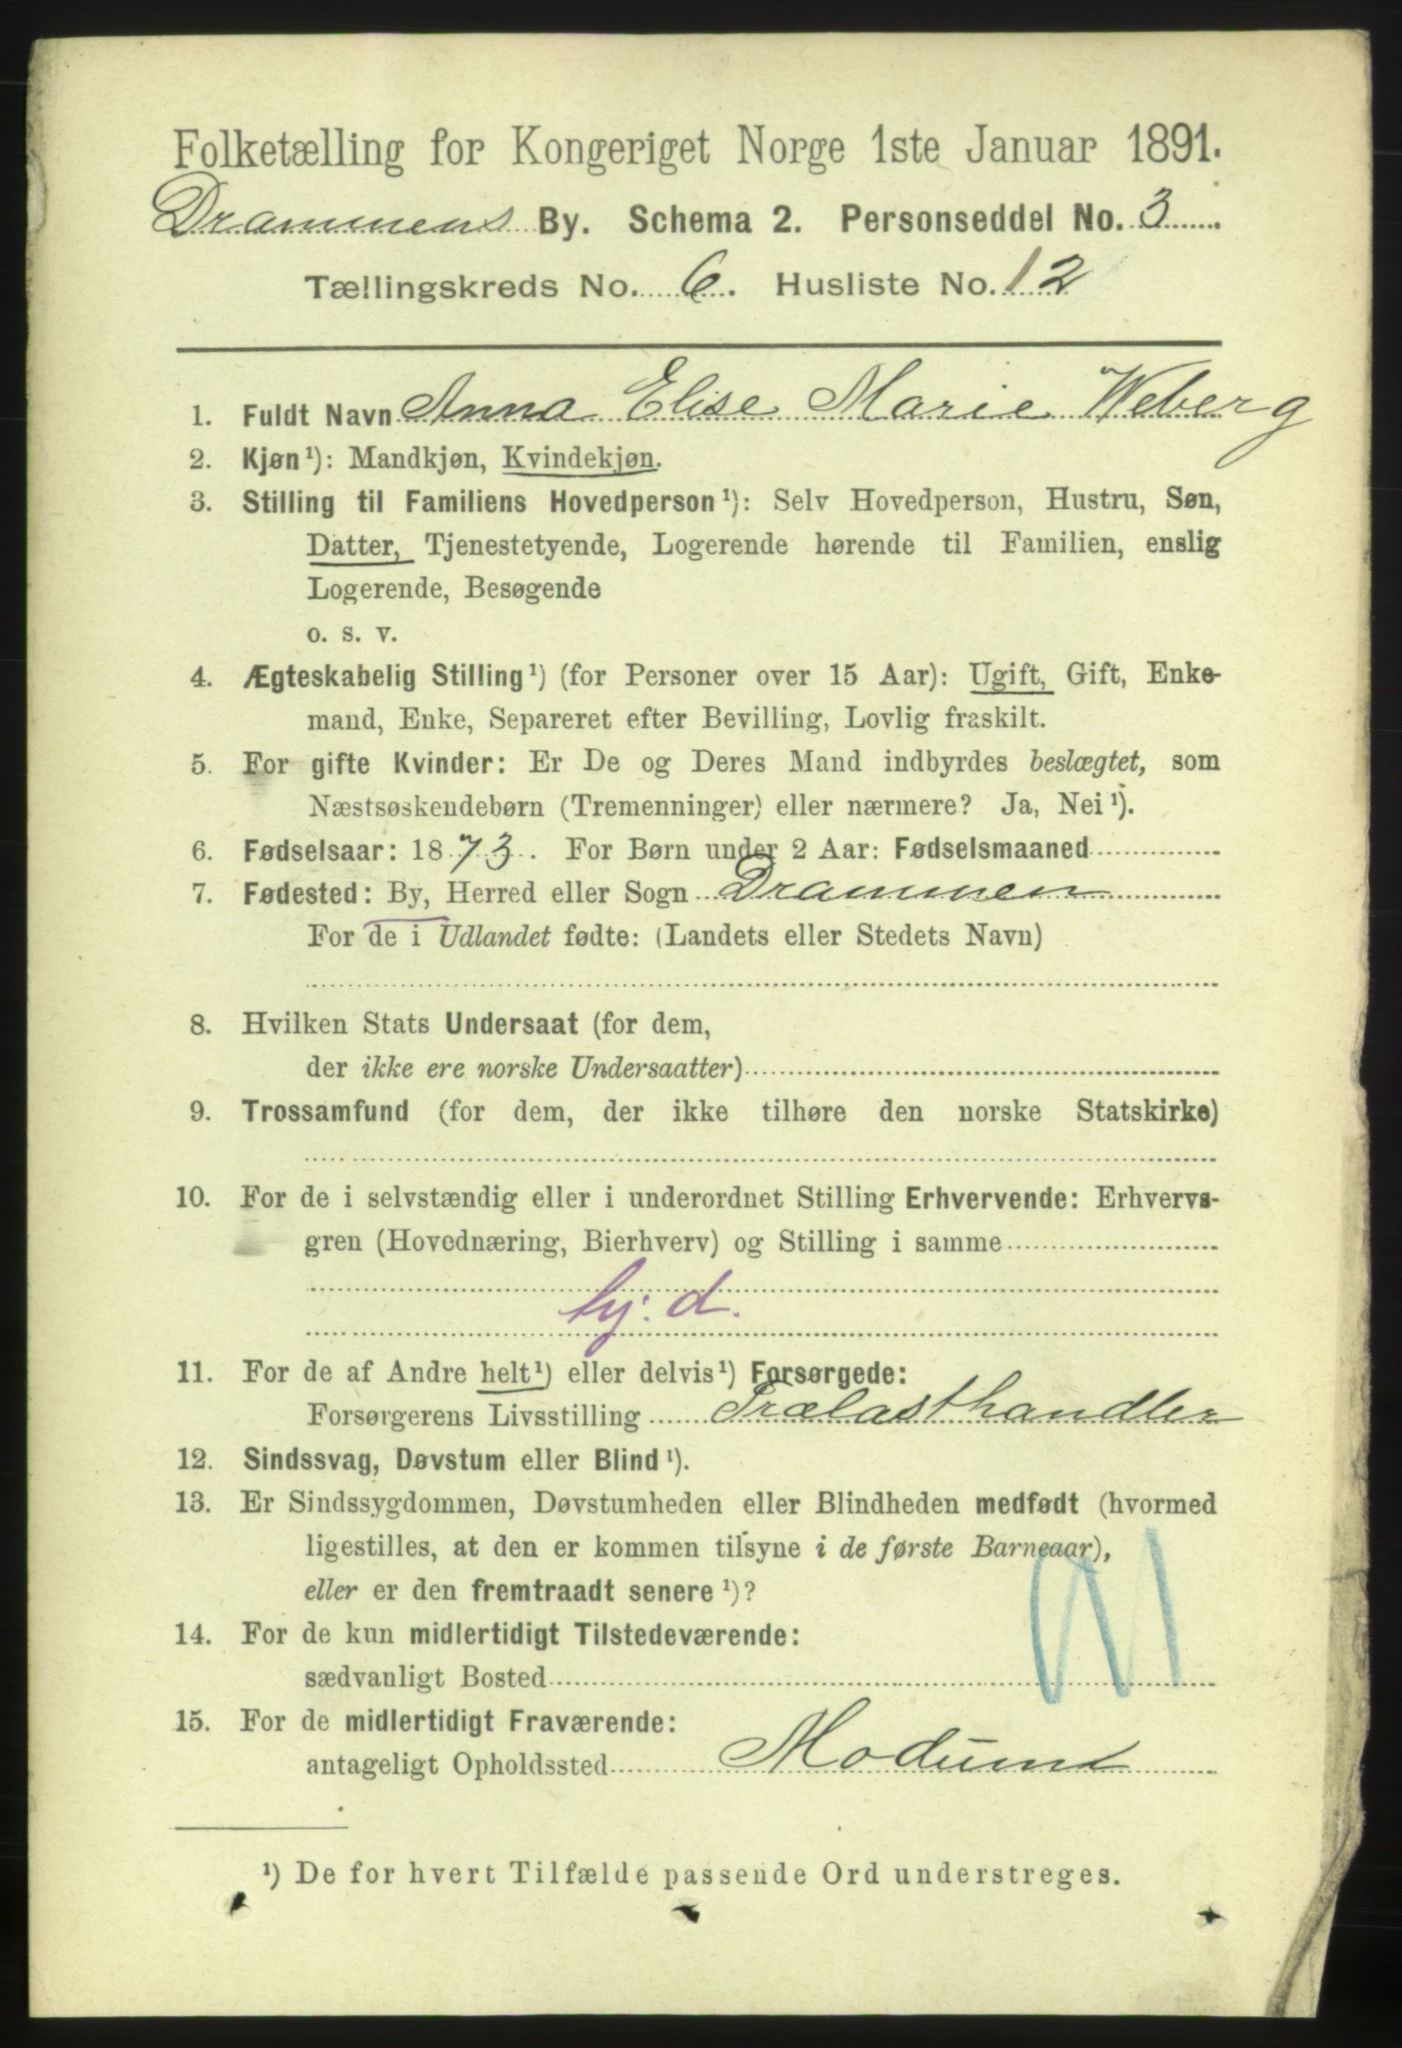 Folketælling for Kongeriget Norge 1ste Januar 1891.
Drammens By. Schema 2. Personseddel No. 3
Tællingskreds No. 6. Husliste No. 12
1. Fuldt Navn Anna Elise Marie Weberg
2. Kjøn¹): Mandkjøn, Kvindekjøn.
3. Stilling til Familiens Hovedperson¹): Selv Hovedperson, Hustru, Søn,
Datter, Tjenestetyende, Logerende hørende til Familien, enslig
Logerende, Besøgende
o. s. v.
4. Ægteskabelig Stilling¹) (for Personer over 15 Aar): Ugift, Gift, Enke-
mand, Enke, Separeret efter Bevilling, Lovlig fraskilt.
5. For gifte Kvinder: Er De og Deres Mand indbyrdes beslægtet, som
Næstsøskendebørn (Tremenninger) eller nærmere? Ja, Nei¹).
6. Fødselsaar: 1873. For Børn under 2 Aar: Fødselsmaaned
7. Fødested: By, Herred eller Sogn Drammen
For de i Udlandet fødte: (Landets eller Stedets Navn)
8. Hvilken Stats Undersaat (for dem,
der ikke ere norske Undersaatter)
9. Trossamfund (for dem, der ikke tilhøre den norske Statskirke)
10. For de i selvstændig eller i underordnet Stilling Erhvervende: Erhvervs-
gren (Hovednæring, Bierhverv) og Stilling i samme
hj. d.
11. For de af Andre helt¹) eller delvis¹) Forsørgede:
Forsørgerens Livsstilling Trælasthandler
12. Sindssvag, Døvstum eller Blind¹).
13. Er Sindssygdommen, Døvstumheden eller Blindheden medfødt (hvormed
ligestilles, at den er kommen tilsyne i de første Barneaar),
eller er den fremtraadt senere¹)?
14. For de kun midlertidigt Tilstedeværende:
sædvanligt Bosted
15. For de midlertidigt Fraværende:
antageligt Opholdssted Modum
¹) De for hvert Tilfælde passende Ord understreges.